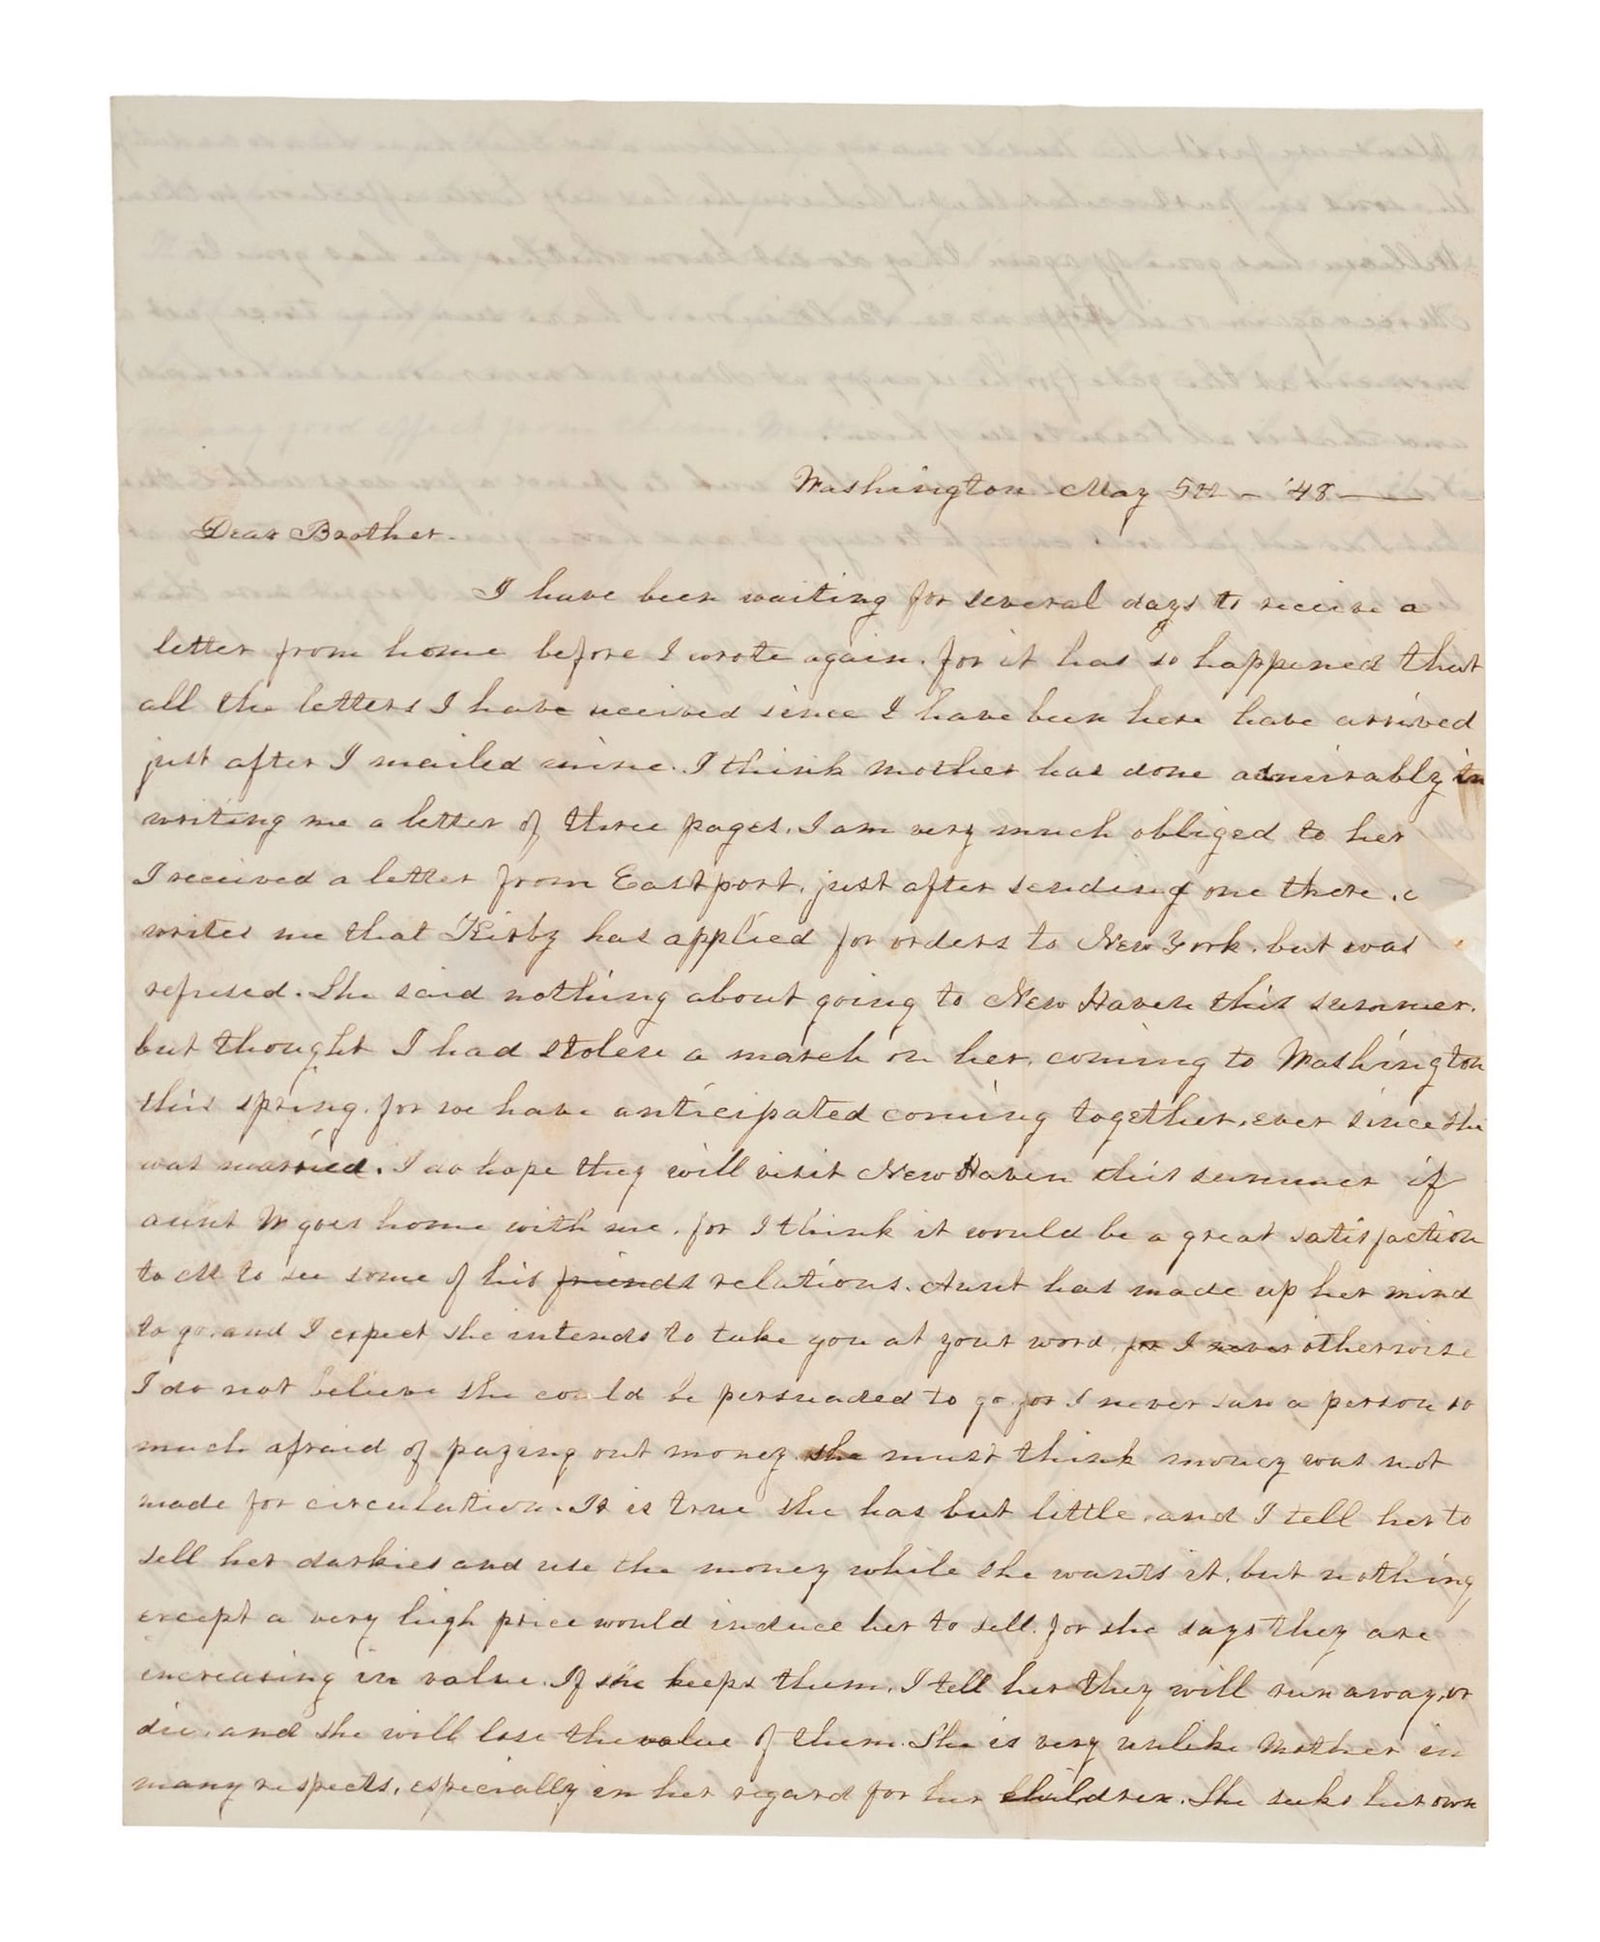 Washington May 5th – '48 —
Dear Brother.
I have been waiting for several days to receive a
letter from home before I wrote again. for it has so happened that
all the letters I have received since I have been here have arrived
just after I mailed mine. I think mother has done admirably in
writing me a letter of three pages. I am very much obliged to her
I received a letter from Eastport. just after sending one there. c
writes me that Kirby has applied for orders to New York. but was
refused. She said nothing about going to New Haven this summer.
but thought I had stolen a march on her. coming to Washington
this spring. for we have anticipated coming together, ever since she
was married. I do hope they will visit New Haven this summer if
aunt M goes home with me. for I think it would be a great satisfaction
to M to see some of his friends relations. Aunt has made up her mind
to go. and I expect she intends to take you at your word. for I never otherwise
I do not believe she could be persuaded to go. for I never saw a person so
much afraid of paying out money. she must think money was not
made for circulation. It is true she has but little, and I tell her to
sell her darkies and use the money while she wants it, but nothing
except a very high price would induce her to sell. for she says they are
increasing in value. If she keeps them, I tell her they will run away, or
die, and she will lose the value of them. She is very unlike Mother in
many respects, especially in her regard for her children. She seeks her own